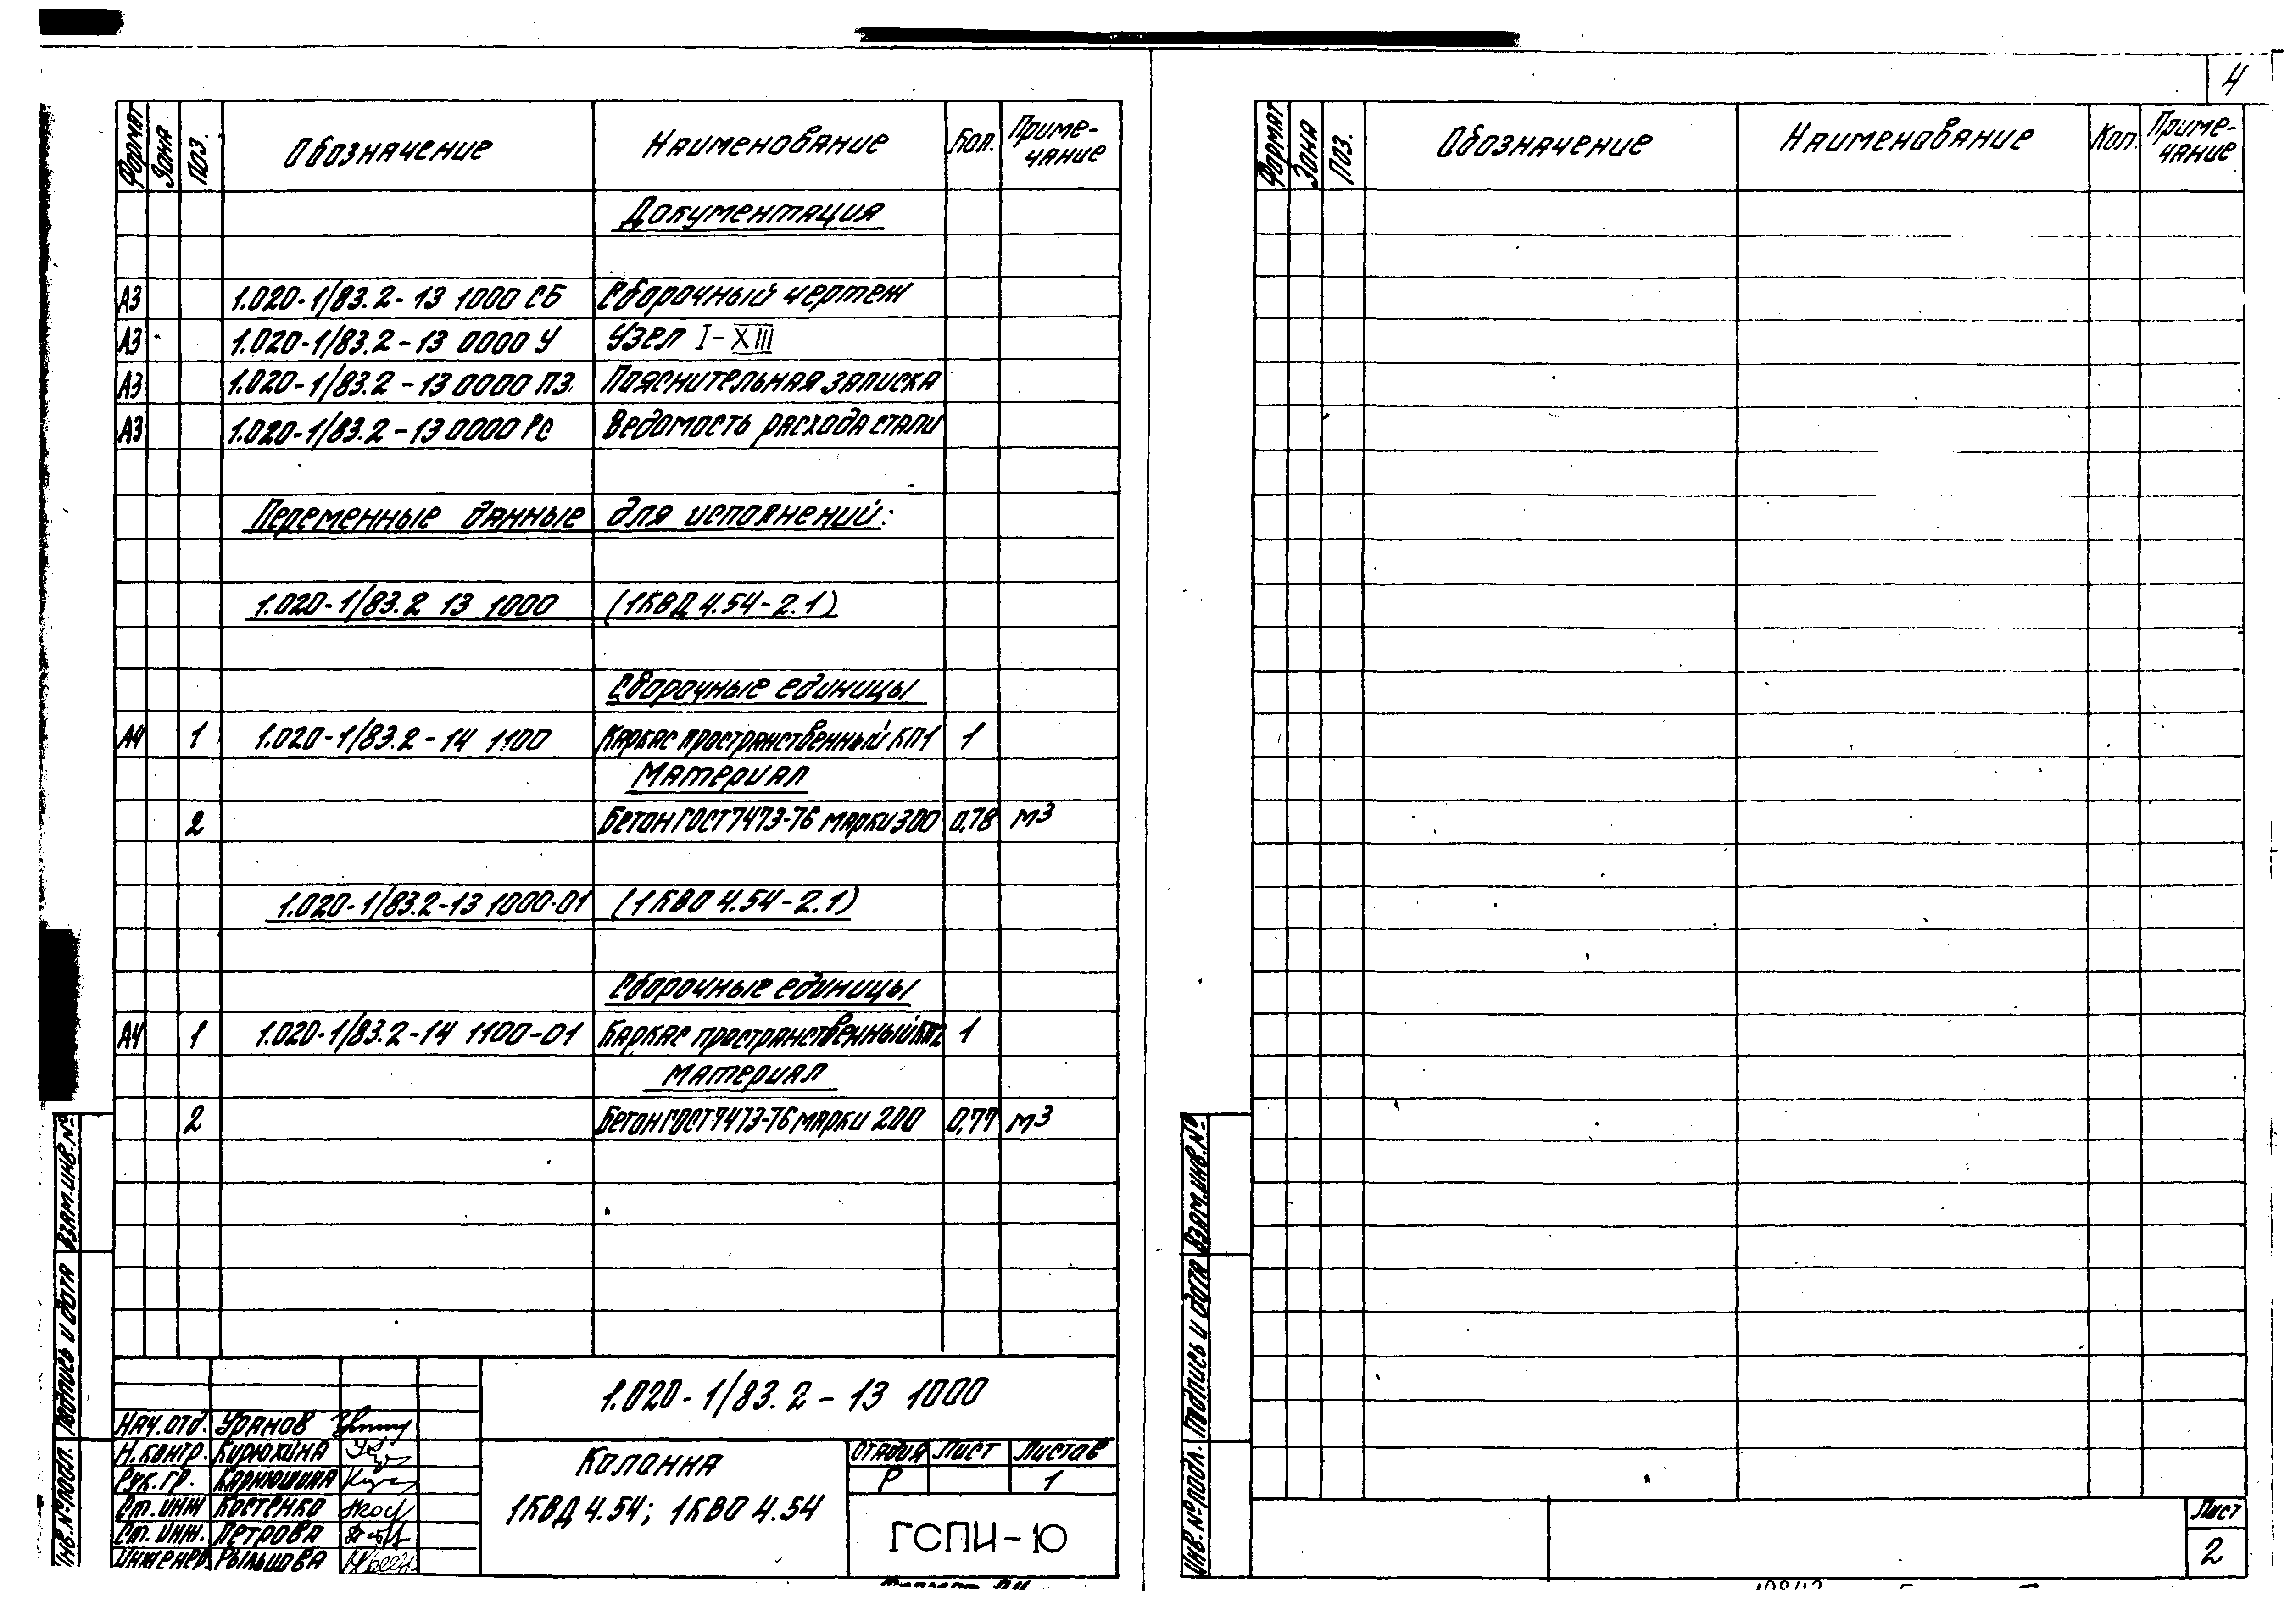 4
Формат Зона Поз. Обозначение Наименование Кол. Приме-чание
Документация
А3 1.020-1/83.2-13 1000 СБ Сборочный чертеж
А3 1.020-1/83.2-13 0000 У Узел I-XIII
А3 1.020-1/83.2-13 0000 ПЗ Пояснительная записка
А3 1.020-1/83.2-13 0000 РС Ведомость расхода стали
Переменные данные для исполнений:
1.020-1/83.2 13 1000 (1КВД 4.54-2.1)
Сборочные единицы
А4 1 1.020-1/83.2-14 1100 Каркас пространственный КП1 1
Материал
2 Бетон ГОСТ 7473-76 марки 300 0,78 м3
1.020-1/83.2-13 1000-01 (1КВО 4.54-2.1)
Сборочные единицы
А4 1 1.020-1/83.2-14 1100-01 Каркас пространственный КП2 1
Материал
2 Бетон ГОСТ 7473-76 марки 200 0,77 м3
Взам.инв.№
Подпись и дата
Инв.№подл.
1.020-1/83.2-13 1000
Нач.отд. Уранов
Н.контр. Кирюхина
Рук.гр.
Ст.инж Костенко
Ст.инж. Петрова
Инженер
Колонна
1КВД 4.54; 1КВО 4.54
Стадия Лист Листов
Р 1
ГСПИ-10
Формат Зона Поз. Обозначение Наименование Кол. Приме-чание
Взам.инв.№
Подпись и дата
Инв.№подл.
Лист
2